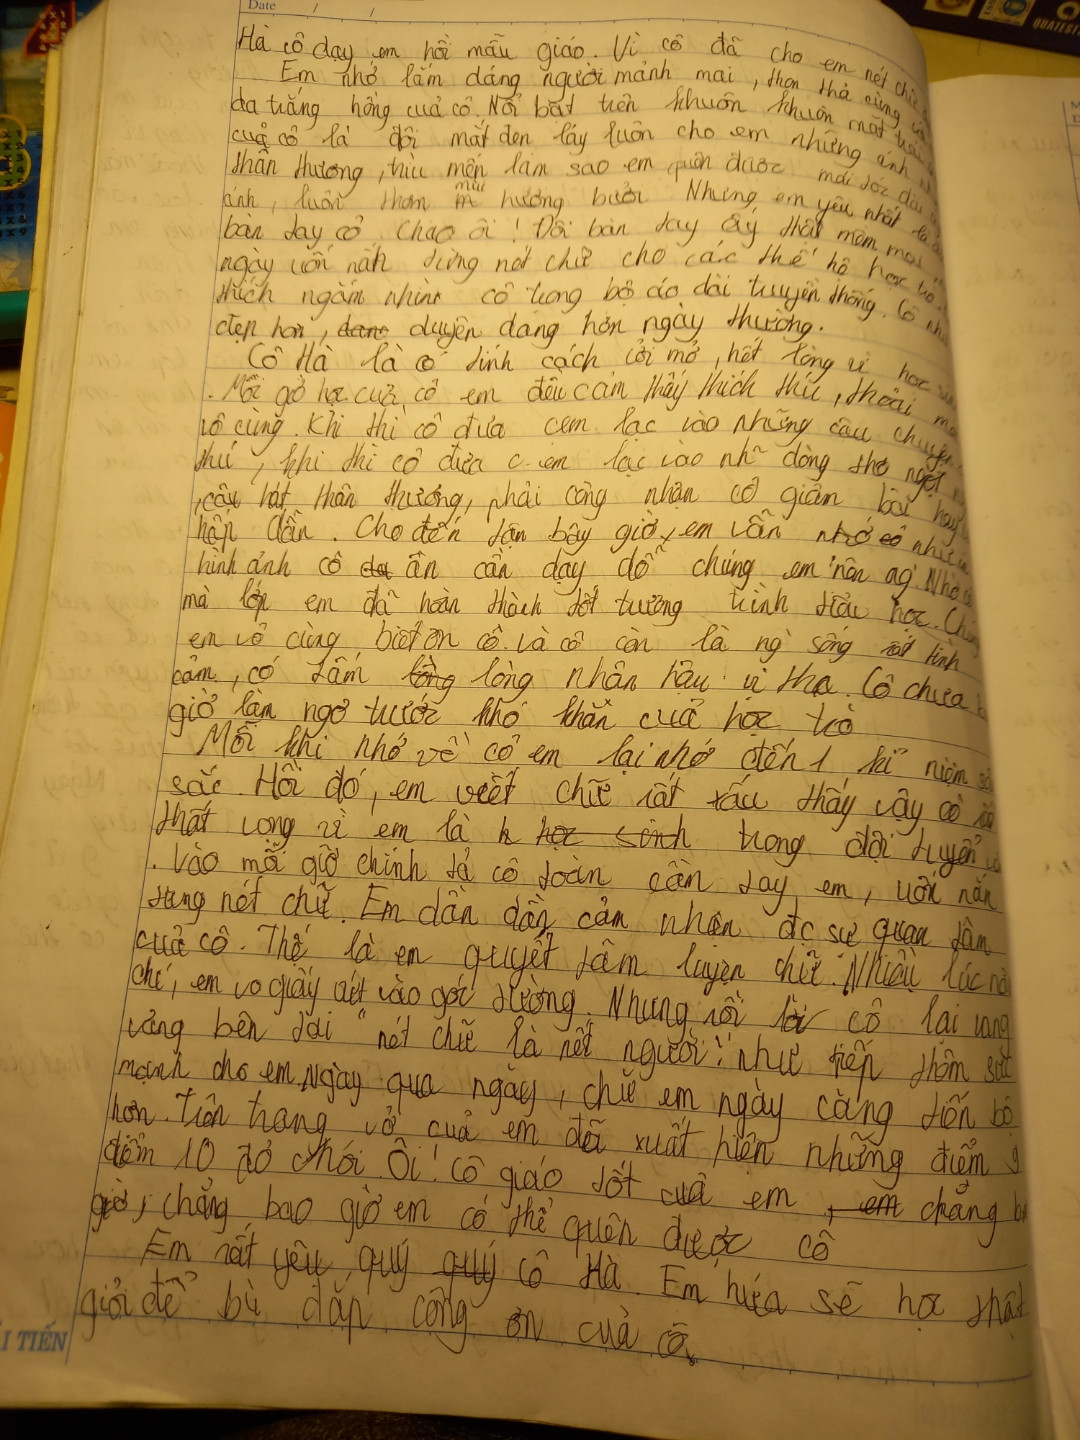 Date / /
Hà cô dạy em hồi mẫu giáo. Vì cô đã cho em nét chữ
Em nhớ lắm dáng người mảnh mai, thon thả cùng
da trắng hồng cuả cô. Nổi bật trên khuôn khuôn mặt
cuả cô là đôi mắt đen láy luôn cho em những ánh
thân thương, trìu mến làm sao em quên được mái tóc dài
ánh, luôn thơm mùi hương bưởi. Nhưng em yêu nhất là
bàn tay cô. Chao ôi! Đôi bàn tay ấy thật mềm mại
ngày uốn nắn từng nét chữ cho các thế hệ học trò.
thích ngắm nhìn cô trong bộ áo dài truyền thống. Cô
đẹp hơn, duyên dáng hơn ngày thường.
Cô Hà là có tính cách cởi mở, hết lòng vì học sinh
. Mỗi giờ học cuả cô em đều cảm thấy thích thú, thoải mái
vô cùng. Khi thì cô đưa cem lạc vào những câu chuyện
thú, khi thì cô đưa c.em lạc vào nh~ dòng thơ ngọt
, câu hát thân thương, phải công nhận cô giảm bài hay
hấp dẫn. Cho đến tận bây giờ, em vẫn nhớ như in
hình ảnh cô ân cần dạy dỗ chúng em nên ng'. Nhờ cô
mà lớp em đã hoàn thành tốt trương trình tiểu học. Chúng
em vô cùng biết ơn cô. và cô còn là ng` sống rất tình
cảm, có tấm lòng lòng nhân hậu vị tha. Cô chưa
giờ làm ngơ trước khó khăn cuả học trò
Mỗi khi nhớ về cô em lại nhớ đến 1 kỉ niệm sâu
sắc. Hồi đó, em viết chữ rất xấu thấy vậy cô rất
thất vọng vì em là h học sinh trong đội tuyển
. Vào mỗi giờ chính tả cô toàn cần tay em, uốn nắn
từng nét chữ. Em dần dần cảm nhận đc sự quan tâm
cuả cô. Thế là em quyết tâm luyện chữ. Nhiều lúc nản
chí, em vo giấy vứt vào góc tường. Nhưng rồi lời cô lại vang
vảng bên tai " nét chữ là nết người." như tiếp thêm sức
mạnh cho em. Ngày qua ngày, chữ em ngày càng tiến bộ
hơn. Trên trang vở cuả em đã xuất hiện những điểm 9
điểm 10 đỏ chói. Ôi! cô giáo tốt cuả em, em chẳng
giờ, chẳng bao giờ em có thể quên được cô
Em rất yêu quý quý cô Hà. Em hứa sẽ học thật
giỏi để bù đắp công ơn cuả cô.
I TIẾN